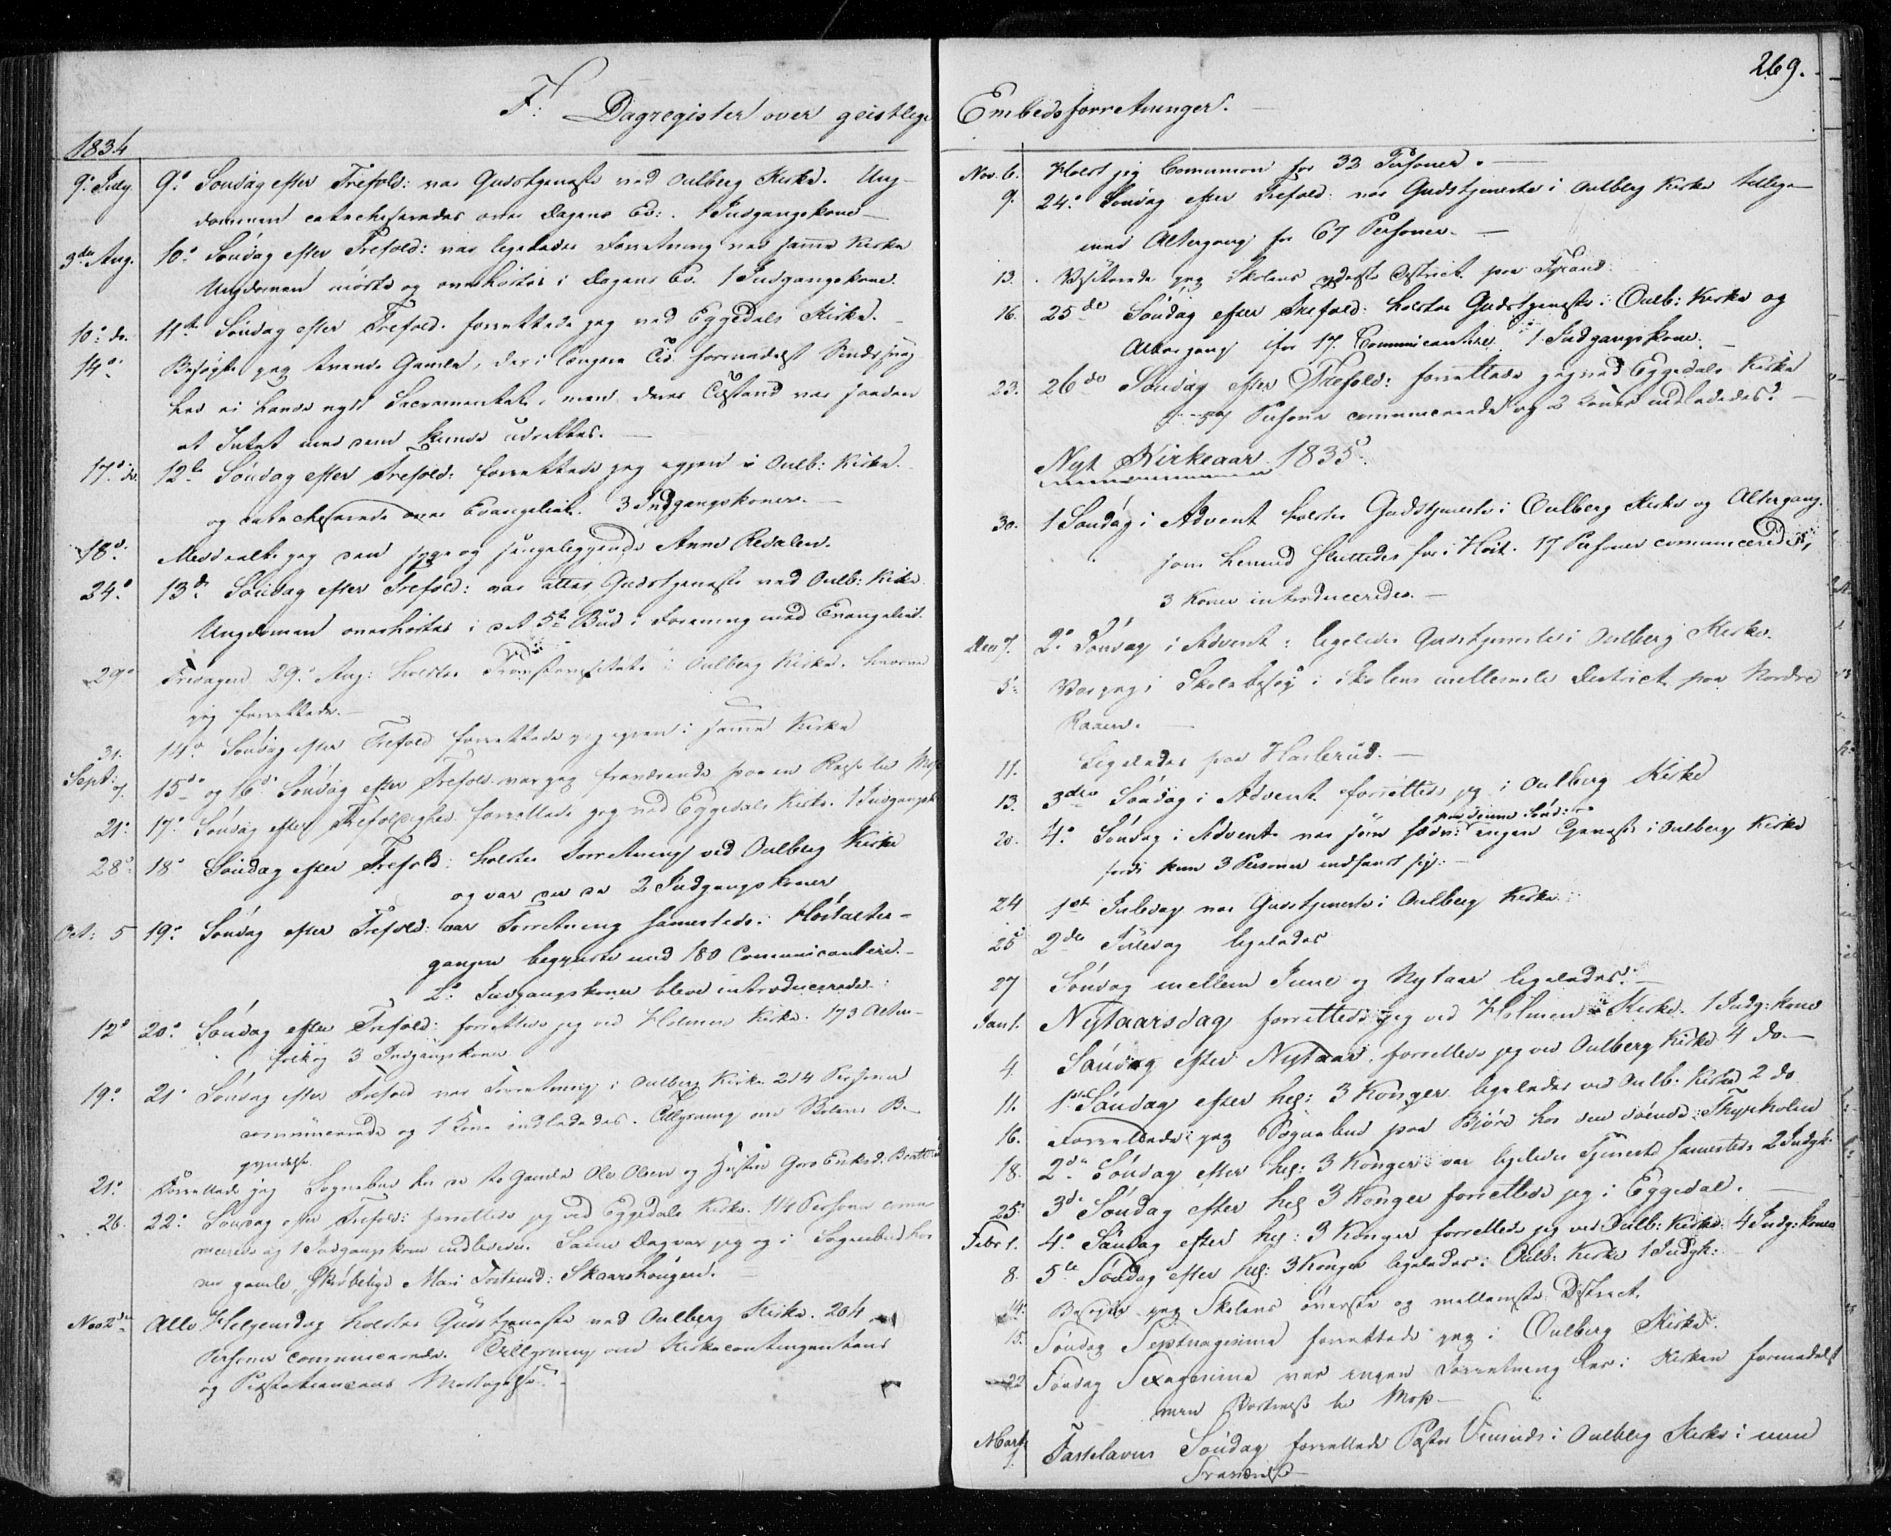 269.
F. Dagregister over geistlige Embedsforretninger.
1834
9. July. 9. Søndag efter Trefold: var Gudstjeneste ved Oulberg Kirke. Ung-
dommen catechiseredes over Dagens Ev:. 1 Indgangskone
3die Aug. 10. Søndag efter Trefold: var ligeledes Forretning ved samme Kirke
Ungdommen mødte og overhørtes i Dagens Ev. 1 Indgangskone.
10. do. 11te Søndag efter Trefold. forrettede jeg ved Eggedals Kirke.
14. Besøgte jeg tvende Gamle, der i længere Tid formedelst Sindssvag
hed ei havde nydt Sacramentet, men deres Tilstand var saadan
at Intet med dem kunde udrettes.
17. do. 12te Søndag efter Trefold: forrettede jeg igjen i Oulb: Kirke.
og catechiserede over Evangeliet. 3 Indgangskoner.
18. Meddeelte jeg den syge og sengeliggende Anne Redalen.
24. 13de Søndag efter Trefold: var atter Gudstjeneste ved Oulb: Kirke
Ungdommen overhørtes i det 5te Bud i Forening med Evangeliet.
29. Fredagen 29. Aug: holdtes i Oulberg Kirke, hvorved
jeg forrettede.
31. 14. Søndag efter Trefold forrettede jeg igjen i samme Kirke
Sept: 7. 15de og 16de Søndag efter Trefold. var jeg fraværende paa en Rejse til Moss
21. 17. Søndag efter Trefoldighed forrettede jeg ved Eggedals Kirke. 1 Indgangsk.
28. 18 Søndag efter Trefold: holdtes Forretning ved Oulberg Kirke
og var der da 2 Indgangskoner
Oct: 5 19. Søndag efter Trefold: var Forretning sammesteds. Høstalter-
gangen begyndte med 180 Communicantere.
2. Indgangskoner bleve introducerede.
12. 20. Søndag efter Trefold: forrettede jeg ved Holmen Kirke. 173 Alter-
folk og 3 Indgangskoner
19. 21. Søndag efter Trefold var Forretning i Oulberg Kirke 214 Personer
communicerede og 1 Kone indledes. Tillysning om Skolens Be-
gyndelse.
21. Forrettede jeg Sognebud hos de to Gamle Ole Olsen og Hustru Goro Eriksd:
26. 22. Søndag efter Trefold: forrettede jeg ved Eggedals Kirke. 114 Personer commu
nicerede og 1 Indgangskone indledes. Samme Dag var jeg og i Sognebud hos
den gamle Skrøbelige Mari Skaarshougen.
Nov 2de Alle Helgensdag holdtes Gudstjeneste ved Oulberg Kirke. 204
Personer communicerede. Tillysning om Kirkecontingentens
og Modtagelse.
Nov. 6. Holdt jeg Comunion for 33 Personer.
9. 24. Søndag efter Trefold var Gudstjeneste i Oulberg Kirke tillige
med Altergang for 67 Personer.
13. Visiterede jeg Skolens yderste District paa
16. 25de Søndag efter Trefold: holdtes Gudstjeneste i Oulb: Kirke og
Altergang for 17. Communicantere 1 Indgangskone.
23. 26de Søndag efter Trefold: forrettede jeg ved Eggedals Kirke
57 Personer communicerede og 2 Koner indledes.
Nyt Kirkeaar 1835.
30. 1 Søndag i Advent holdtes Gudstjeneste i Oulberg Kirke og Altergang.
som hermed sluttedes for i Høst. 17 Personer comunicerede,
3 Koner introduceredes.
Dec 7. 2. Søndag i Advent: ligeledes Gudstjeneste i Oulberg Kirke.
5. Var jeg i Skolebesøg i Skolens mellemste District paa Nordre
Raaen.
11. Ligeledes paa Haslerud.
13. 3die Søndag i Advent forrettede jeg i Oulberg Kirke
20. 4. Søndag i Advent var som sædv: paa denne Sønd: ingen Tjeneste i Oulberg Kirke
fordi kun 3 Personer indfandt sig.
24 1ste Juledag var Gudstjeneste i Oulberg Kirke
25 2den Juledag ligeledes
27 Søndag mellem Juul og Nytaar ligeledes.
Jan 1. Nytaarsdag forrettede jeg ved Holmen Kirke. 1 Indg: kone
4 Søndag efter Nytaar. forrettede jeg ved Oulberg Kirke 4 do.
11. 1ste Søndag efter hel: 3 Konger ligeledes ved Oulb: Kirke 2 do
16. Forrettede jeg Sognebud paa Bjøre hos den døende
18. 2den Søndag efter hel: 3 Konger var ligeledes Tjeneste sammesteds 2 Indgk:
25 3die Søndag efter hel 3 Konger forrettede jeg i Eggedal.
Febr 1. 4. Søndag efter hel: 3 Konger forrettede jeg ved Oulb: Kirke. 4 Indg: koner
8. 5te Søndag efter hel: 3 Konger ligeledes i Oulb. Kirke 1 Indgk:
14. Besøgte jeg Skolens øverste og mellemste District.
15. Søndag Septuagesima forrettede jeg i Oulberg Kirke
22 Søndag Sexagesima var ingen Forretning her i Kirken formedelst
min til Moss
Marts 1. Fastelavns Søndag forrettede Pastor i Oulberg Kirke i min
Fraværelse